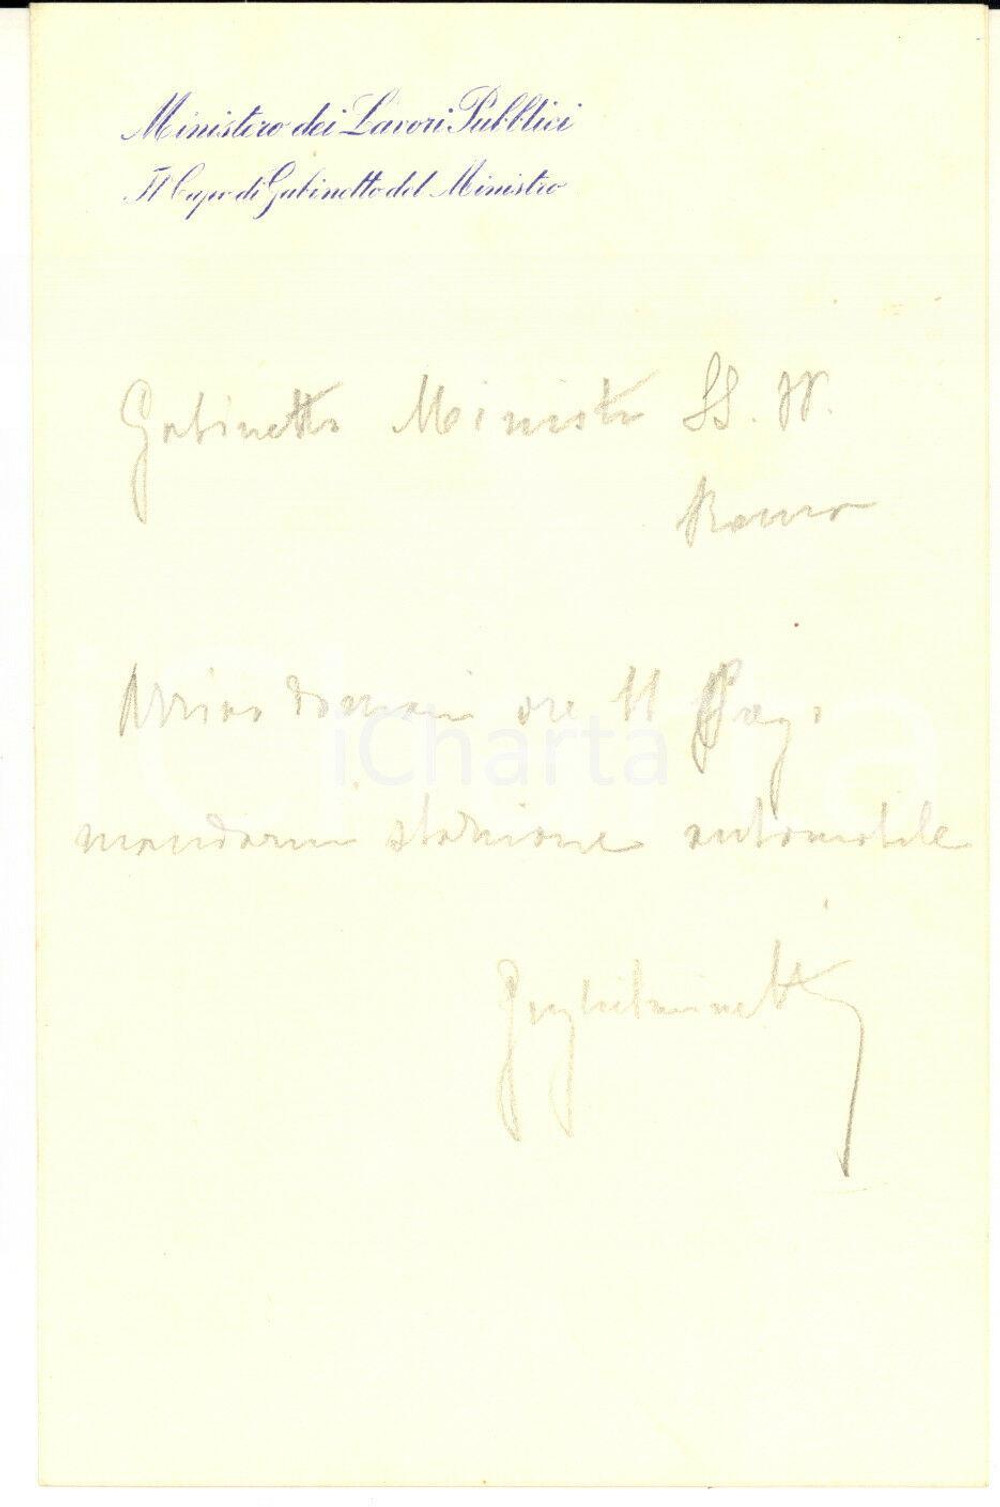 Ministero dei Lavori Pubblici
Il Capo di Gabinetto del Ministro
Gabinetto Ministro
Roma
Arrivo domani ore 11 Prego
mandarmi stazione automobile
iCharta